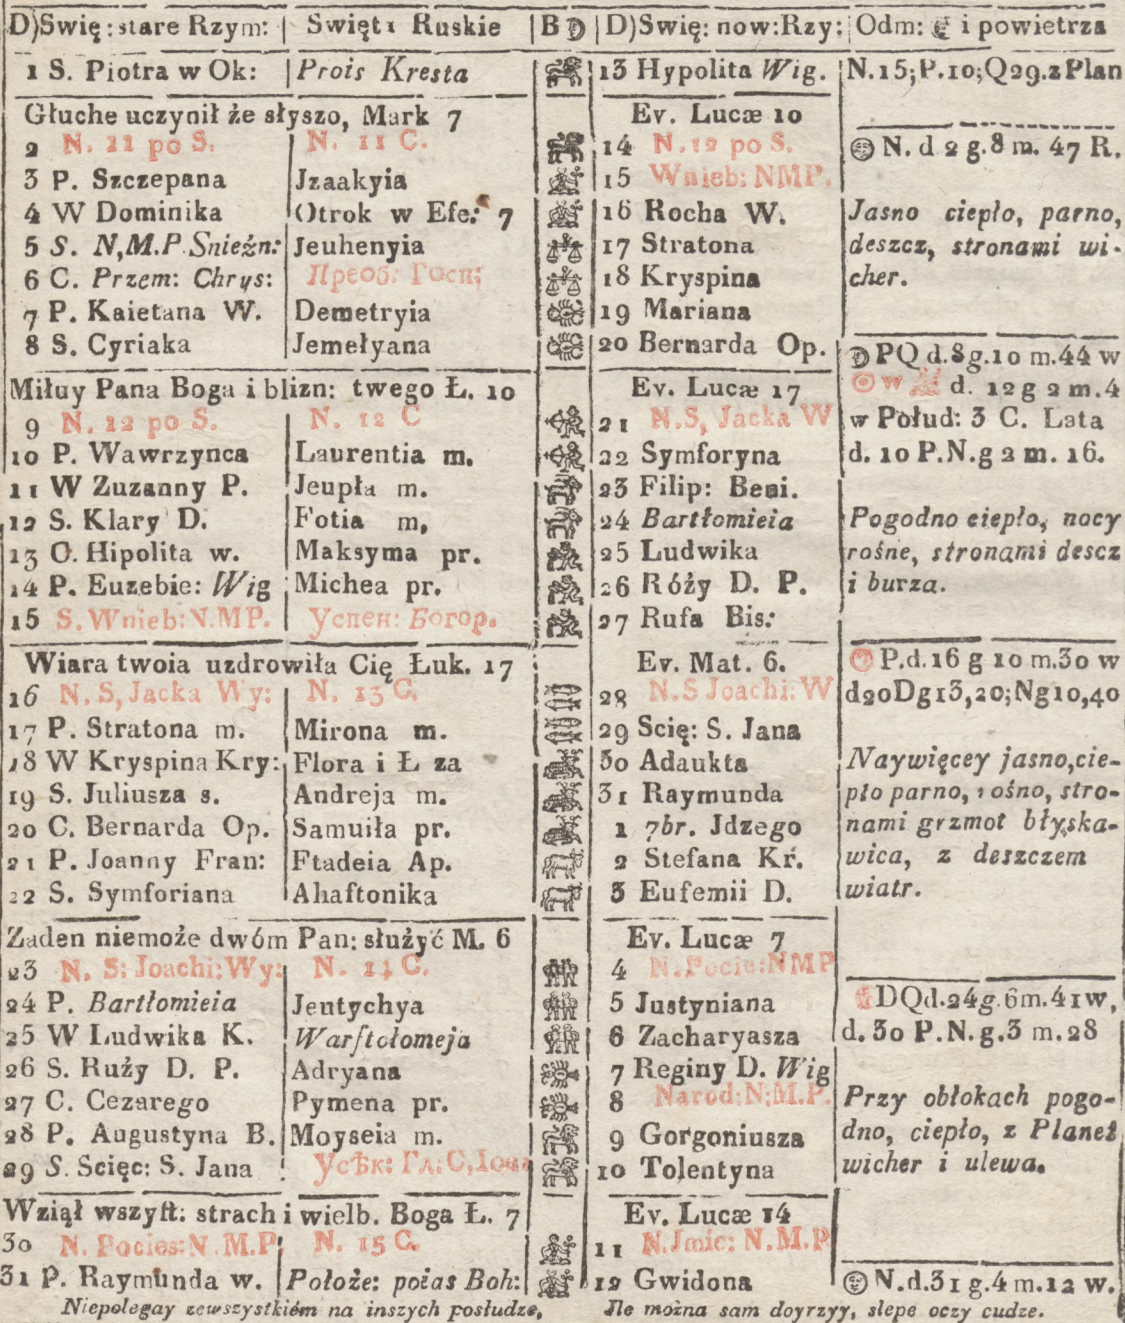 D)Swię: stare Rzym: | Swięti Ruskie | B | D)Swię: now: Rzy: | Odm: i powietrza
1 S. Piotra w Ok: | Prois Kresta | 13 Hypolita Wig. | N.15;P.10;Q29.zPlan
Głuche uczynił że słyszo, Mark 7 | Ev. Lucæ 10
2 N. 11 po S. | N. 11 C. | 14 N. 12 po S. | N. d 2 g. 8 m. 47 R.
3 P. Szczepana | Jzaakyia | 15 Wnieb: NMP.
4 W Dominika | Otrok w Efe: 7 | 16 Rocha W. | Jasno ciepło, parno,
5 S. N,M.P Snieźn: | Jeuhenyia | 17 Stratona | deszcz, stronami wi-
6 C. Przem: Chrys: | Преоб: Госп: | 18 Kryspina | cher.
7 P. Kaietana W. | Demetryia | 19 Mariana
8 S. Cyriaka | Jemełyana | 20 Bernarda Op. | PQ d.8g.10 m.44 w
Miłuy Pana Boga i blizn: twego Ł. 10 | Ev. Lucæ 17 | w d. 12 g 2 m. 4
9 N. 12 po S. | N. 12 C | 21 N.S, Jacka W | w Połud: 3 C. Lata
10 P. Wawrzynca | Laurentia m. | 22 Symforyna | d. 10 P.N.g 2 m. 16.
11 W Zuzanny P. | Jeupła m. | 23 Filip: Beni.
12 S. Klary D. | Fotia m, | 24 Bartłomieia | Pogodno ciepło, nocy
13 C. Hipolita w. | Maksyma pr. | 25 Ludwika | rośne, stronami descz
14 P. Euzebie: Wig | Michea pr. | 26 Róży D. P. | i burza.
15 S. Wnieb: N.MP. | Успен: Богор. | 27 Rufa Bis:
Wiara twoia uzdrowiła Cię Łuk. 17 | Ev. Mat. 6. | P.d.16 g 10 m.30 w
16 N. S, Jacka Wy: | N. 13 C. | 28 N.S Joachi: W | d20Dg13,20;Ng10,40
17 P. Stratona m. | Mirona m. | 29 Scię: S. Jana
18 W Kryspina Kry: | Flora i Ł za | 30 Adaukta | Naywięcey jasno,cie-
19 S. Juliusza s. | Andreja m. | 31 Raymunda | pło parno, rośno, stro-
20 C. Bernarda Op. | Samuiła pr. | 1 7br. Jdzego | nami grzmot błyska-
21 P. Joanny Fran: | Ftadeia Ap. | 2 Stefana Kŕ. | wica, z deszczem
22 S. Symforiana | Ahaftonika | 3 Eufemii D. | wiatr.
Zaden niemoże dwóm Pan: służyć M. 6 | Ev. Lucæ 7
23 N. S: Joachi: Wy: | N. 14 C. | 4 N.Pocie:NMP
24 P. Bartłomieia | Jentychya | 5 Justyniana | DQd.24g.6m.41w,
25 W Ludwika K. | Warftołomeja | 6 Zacharyasza | d. 30 P.N.g.3 m.28
26 S. Ruży D. P. | Adryana | 7 Reginy D. Wig
27 C. Cezarego | Pymena pr. | 8 Narod: N: M.P. | Przy obłokach pogo-
28 P. Augustyna B. | Moyseia m. | 9 Gorgoniusza | dno, ciepło, z Planet
29 S. Scięc: S. Jana | Усѣк: Гл: С, Іоан | 10 Tolentyna | wicher i ulewa.
Wziął wszyſt: strach i wielb. Boga Ł. 7 | Ev. Lucæ 14
30 N. Pocies: N.M.P. | N. 15 C. | 11 N.Jmic: N.M.P
31 P. Raymunda w. | Położe: poias Boh: | 12 Gwidona | N.d.31 g.4 m.12 w.
Niepolegay zewszystkiém na inszych posłudze, Jle można sam doyrzyy, slepe oczy cudze.